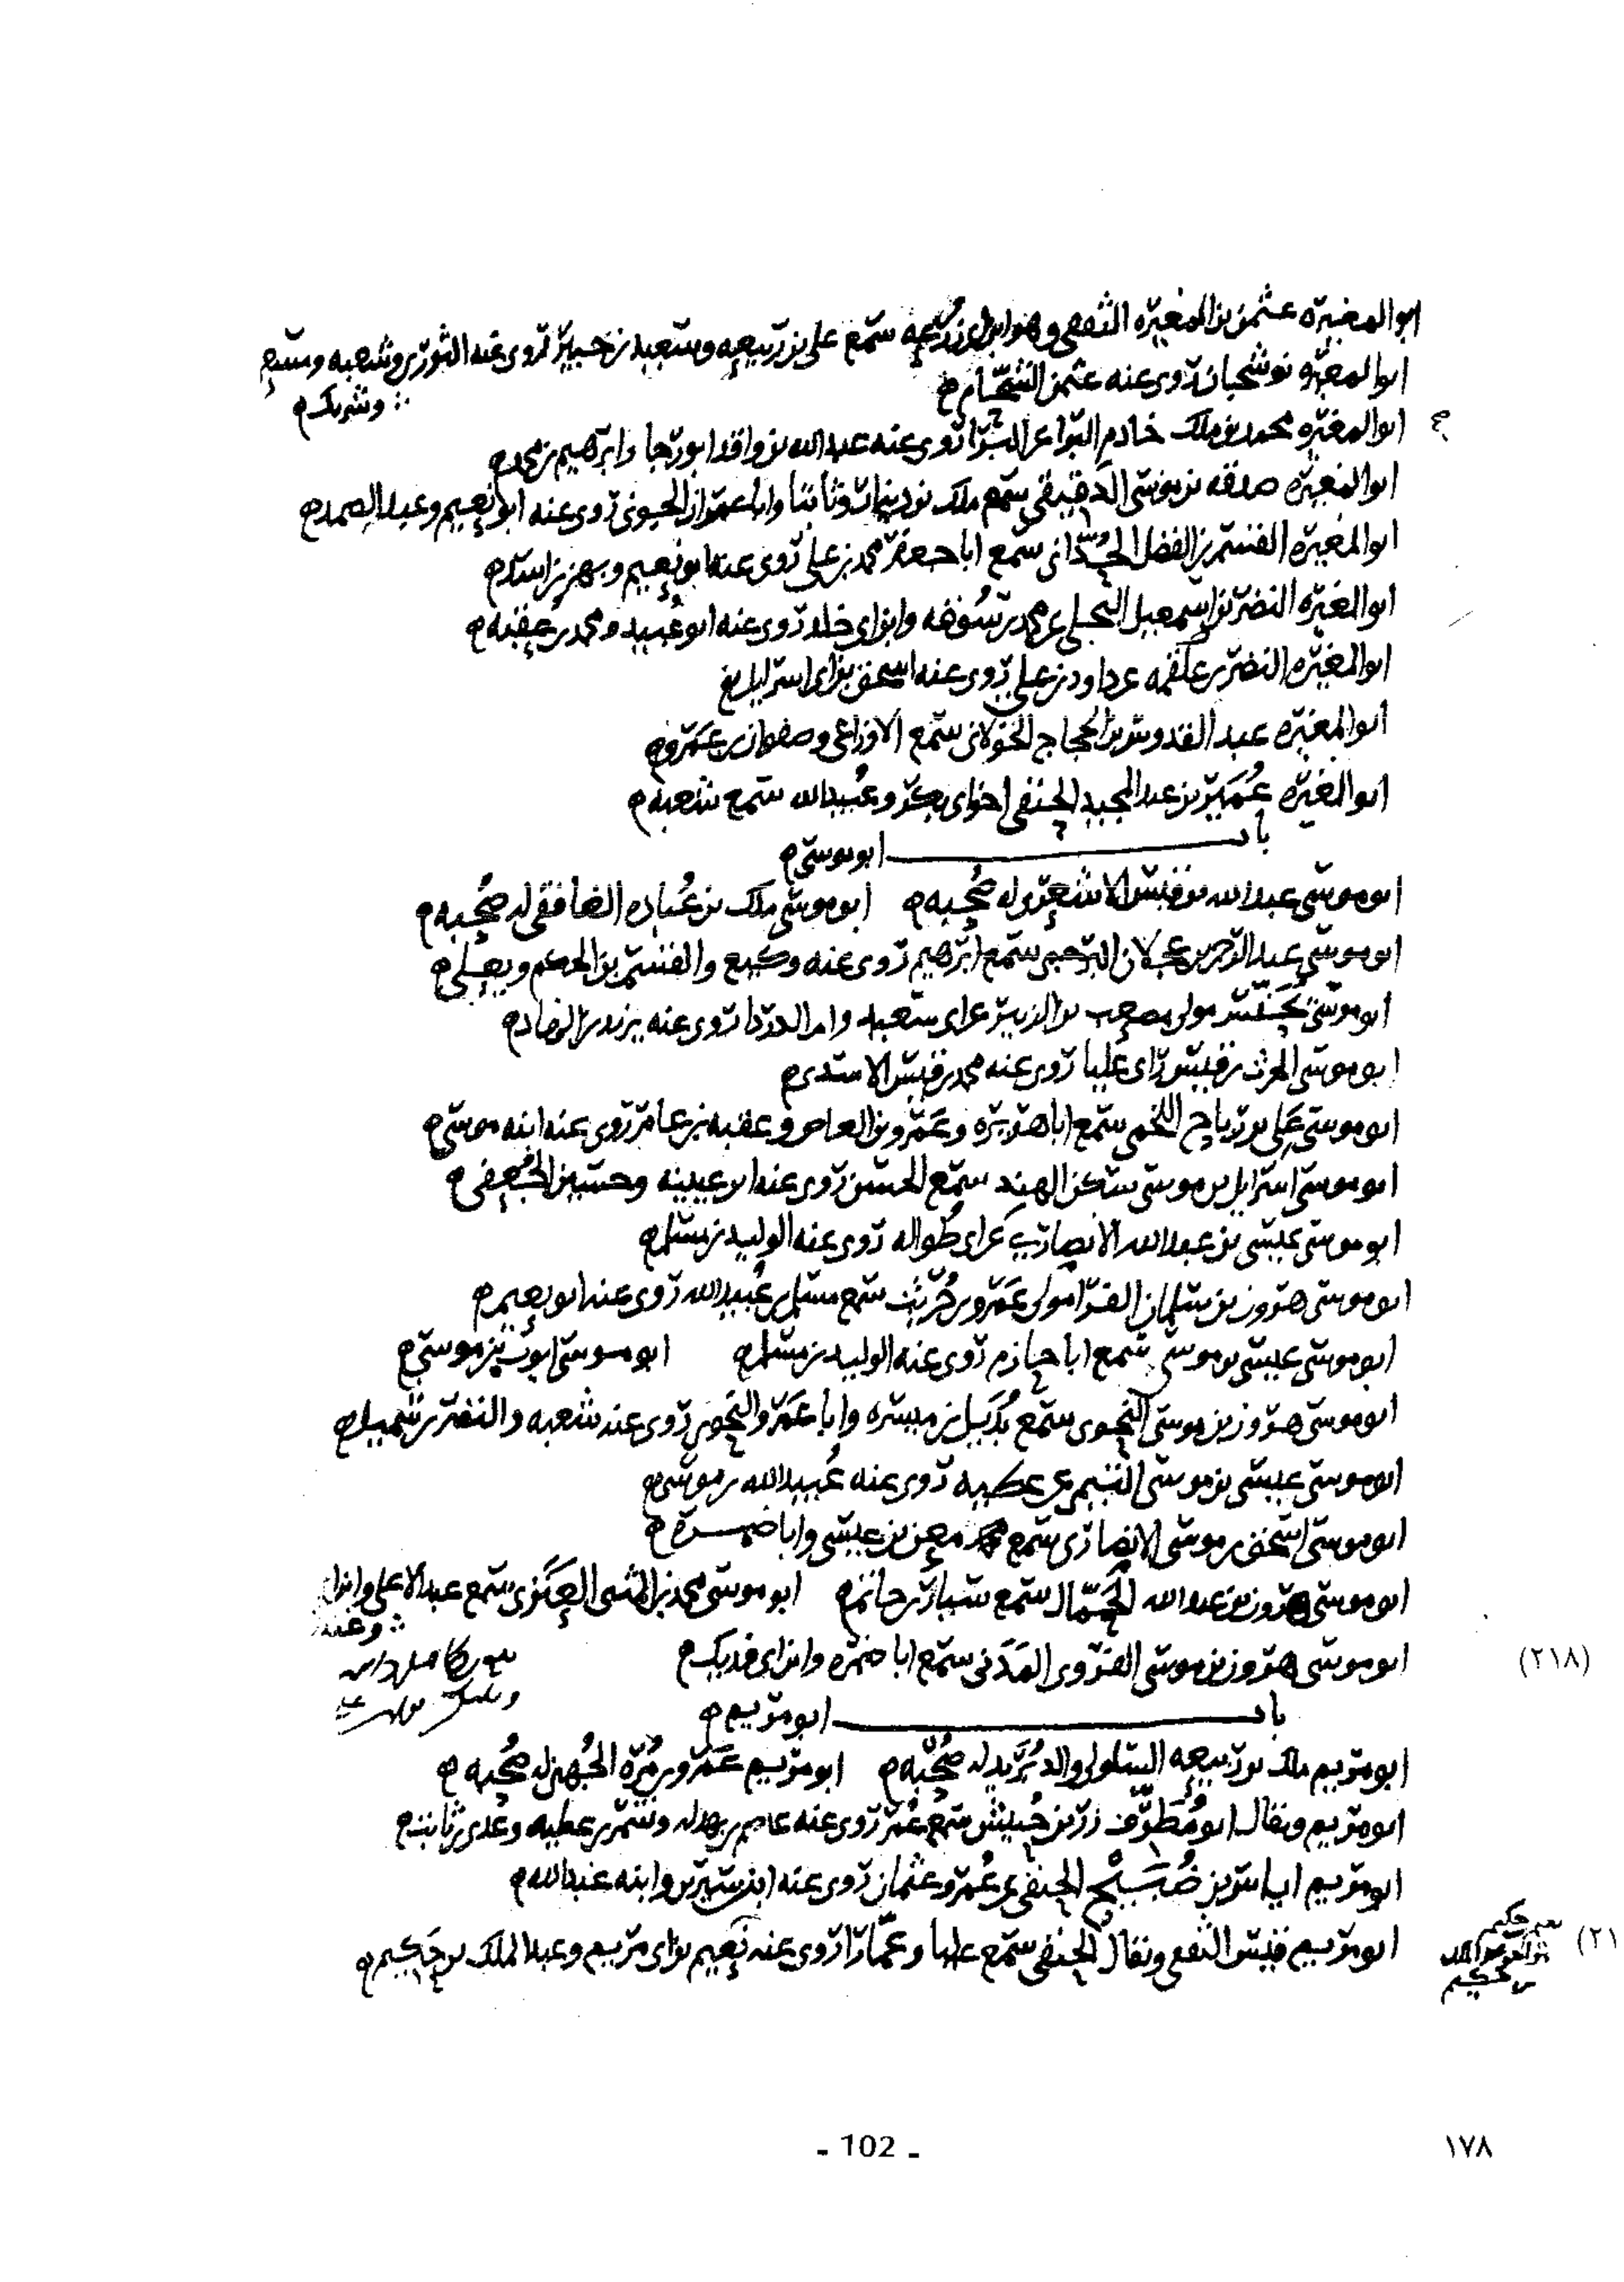 ابو المغيره عثمن بن المغيره الثقفى وهو ابن ابى زرعه سمع على بن ربيعه وسعيد بن جبير روى عنه الثورى وشعبه ومسعر
وشريك
ابو المغيره نوشجان روى عنه عثمن الشحام
ابو المغيره محمد بن ملك خادم البرا عن البرا روى عنه عبد الله بن واقد ابو رجا وابرهيم بن محمد
ابو المغيره صدقه بن موسى الدقيقى سمع ملك بن دينار وثابتا وابا عمران الجونى روى عنه ابو نعيم وعبد الصمد
ابو المغيره القسم بن الفضل الحدانى سمع ابا جعفر محمد بن على روى عنه ابو نعيم وبهز بن اسد
ابو المغيره النضر بن اسمعيل البجلى عن محمد بن سوقه وابن ابى خلد روى عنه ابو عبيد ومحمد بن عقبه
ابو المغيره النضر بن علقمه عن داود بن على روى عنه اسحق بن ابى اسرايل
ابو المغيره عبد القدوس بن الحجاج الخولانى سمع الاوزاعى وصفوان بن عمرو
ابو المغيره عمير بن عبد المجيد الحنفى اخو ابى بكر وعبيد الله سمع شعبه
باب ابو موسى
ابو موسى عبد الله بن قيس الاشعرى له صحبه ابو موسى ملك بن عباده الغافقى له صحبه
ابو موسى عبد الرحمن بن عجلان البرجمى سمع ابرهيم روى عنه وكيع والقسم بن الحكم ويعلى
ابو موسى يحنس مولى مصعب بن الزبير عن ابى سعيد وام الدردا روى عنه يزيد بن الهاد
ابو موسى الحرث بن قيس راى عليا روى عنه محمد بن قيس الاسدى
ابو موسى على بن رباح اللخمى سمع ابا هريره وعمرو بن العاص وعقبه بن عامر روى عنه ابنه موسى
ابو موسى اسرايل بن موسى سكن الهند سمع الحسن روى عنه ابن عيينه وحسين الجعفى
ابو موسى عيسى بن عبد الله الانصارى عن ابى طواله روى عنه الوليد بن مسلم
ابو موسى هرون بن سلمان الفرا مولى عمرو بن حريث سمع مسلم بن عبيد الله روى عنه ابو نعيم
ابو موسى عيسى بن موسى سمع ابا حازم روى عنه الوليد بن مسلم ابو موسى ايوب بن موسى
ابو موسى هرون بن موسى النحوى سمع بديل بن ميسره وابا عمرو النحوى روى عنه شعبه والنضر بن شميل
ابو موسى عيسى بن موسى التيمى عن عطيه روى عنه عبيد الله بن موسى
ابو موسى اسحق بن موسى الانصارى سمع معن بن عيسى وابا ضمره
ابو موسى هرون بن عبد الله الحمال سمع سيار بن حاتم ابو موسى محمد بن المثنى العنزى سمع عبد الاعلى وابن ابى
وعنه
ابو موسى هرون بن موسى الفروى المدنى سمع ابا ضمره وابن ابى فديك
(٢١٨)
باب ابو مريم
ابو مريم ملك بن ربيعه السلولى والد بريد له صحبه ابو مريم عمرو بن مره الجهنى له صحبه
ابو مريم ويقال ابو مطرف زر بن حبيش سمع عمر روى عنه عاصم بن بهدله وشمر بن عطيه وعدى بن ثابت
ابو مريم اياس بن ضبيح الحنفى عن عمر وعثمان روى عنه ابن سيرين وابنه عبد الله
ابو مريم قيس الثقفى ويقال الحنفى سمع عليا وعمارا روى عنه نعيم بن ابى مريم وعبد الملك بن حكيم
(٢١
نعيم حكيم
بن حكيم
- 102 -
١٧٨